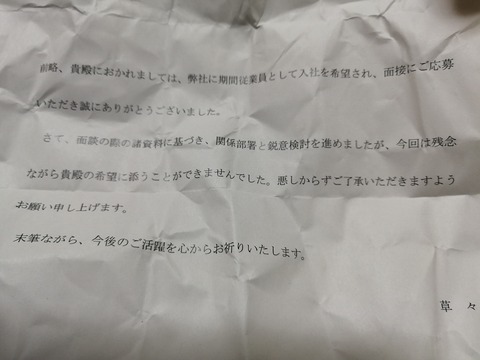 前略、貴殿におかれましては、弊社に期間従業員として入社を希望され、面接にご応募
いただき誠にありがとうございました。
さて、面談の際の諸資料に基づき、関係部署と鋭意検討を進めましたが、今回は残念
ながら貴殿の希望に添うことができませんでした。悪しからずご了承いただきますよう
お願い申し上げます。
末筆ながら、今後のご活躍を心からお祈りいたします。
草々